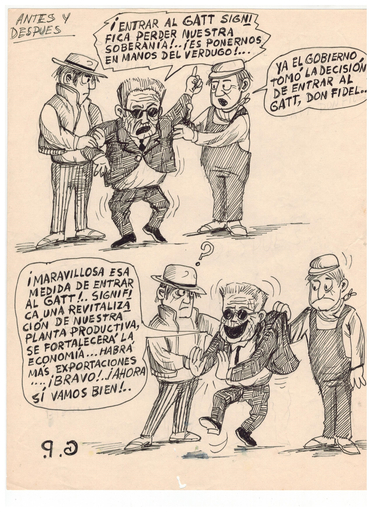 ANTES Y
DESPUES
¡ENTRAR AL GATT SIGNI
FICA PERDER NUESTRA
SOBERANIA!..¡ES PONERNOS
EN MANOS DEL VERDUGO!...
YA EL GOBIERNO
TOMÓ LA DECISIÓN
DE ENTRAR AL
GATT, DON FIDEL..
?
¡MARAVILLOSA ESA
MEDIDA DE ENTRAR
AL GATT!.. SIGNIFI
CA UNA REVITALIZA
CIÓN DE NUESTRA
PLANTA PRODUCTIVA,
SE FORTALECERÁ LA
ECONOMIA... HABRÁ
MÁS EXPORTACIONES
....¡BRAVO!..¡AHORA
SÍ VAMOS BIEN!..